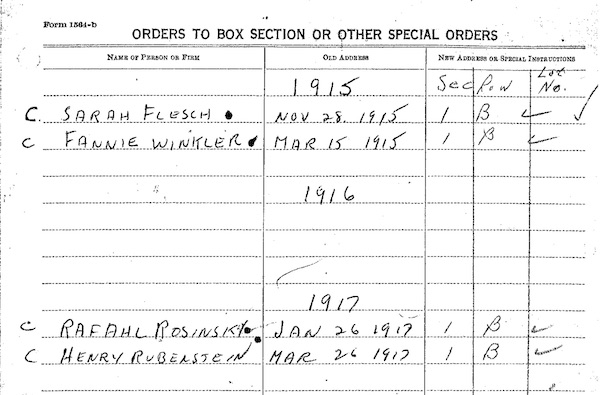 Form 1564-b
ORDERS TO BOX SECTION OR OTHER SPECIAL ORDERS
NAME OF PERSON OR FIRM OLD ADDRESS NEW ADDRESS OR SPECIAL INSTRUCTIONS
1915 Sec Row Lot No.
C. SARAH FLESCH NOV 28. 1915 1 B ✓ ✓
C FANNIE WINKLER MAR 15 1915 1 B ✓
1916
1917
C RAFAHL ROSINSKY JAN 26 1917 1 B ✓
C HENRY RUBENSTEIN MAR 26 1917 1 B ✓